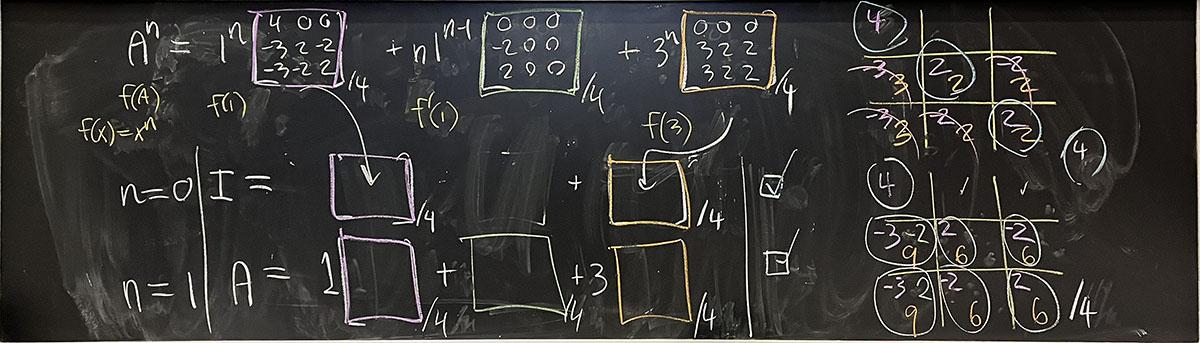 Aⁿ = 1ⁿ [4 0 0 / -3 2 -2 / -3 -2 2] /4 + n1ⁿ⁻¹ [0 0 0 / -2 0 0 / 2 0 0] /4 + 3ⁿ [0 0 0 / 3 2 2 / 3 2 2] /4
f(A) f(1) f'(1) f(3)
f(x)=xⁿ
n=0 | I = /4 + /4 ☑
n=1 | A = 1 /4 + /4 + 3 /4
4
-3 3 2 2 -2 2
-3 3 -2 2 2 2
4
4 ✓ ✓
-3 -2 9 2 6 -2 6
-3 2 9 -2 6 2 6 /4